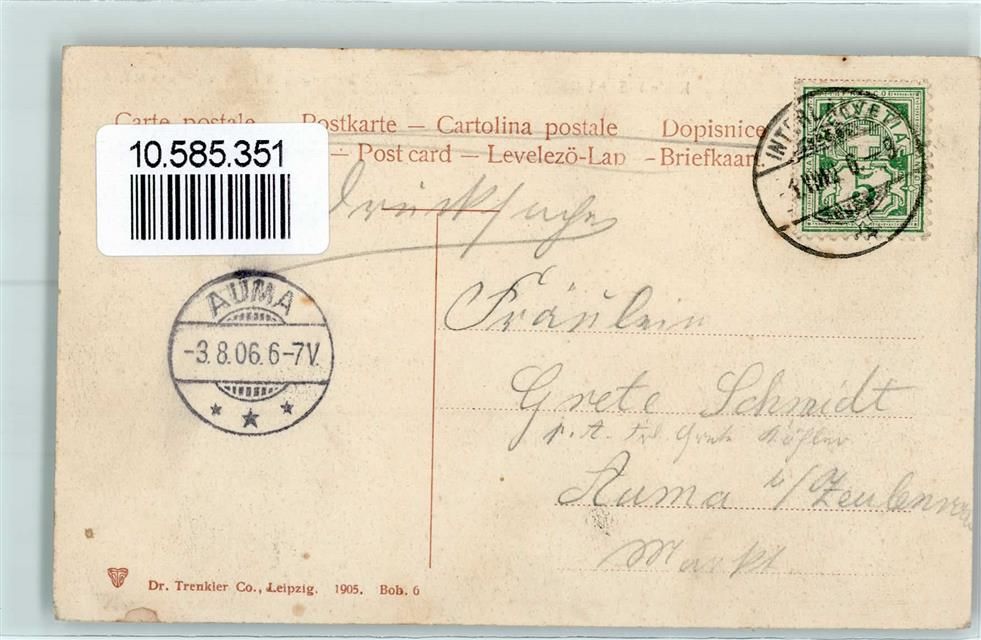 Carte postale — Postkarte — Cartolina postale Dopisnice
— Post card — Levelező-Lap — Briefkaart
10.585.351
Drucksache
AUMA
-3.8.06.6-7V.
5
Fräulein
Grete Schmidt
p. A. Frl. Grete Köhler
Auma b/Zeulenroda
Markt.
Dr. Trenkler Co., Leipzig. 1905. Bob. 6